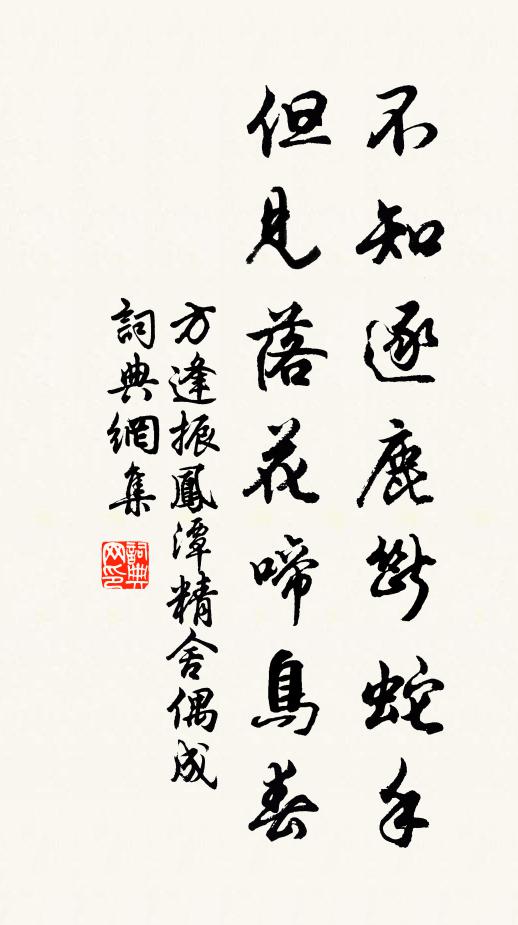 不知逐鹿斷蛇手
但見落花啼鳥春
方逢振鳳潭精舍偶成
詞典網集
詞典网印